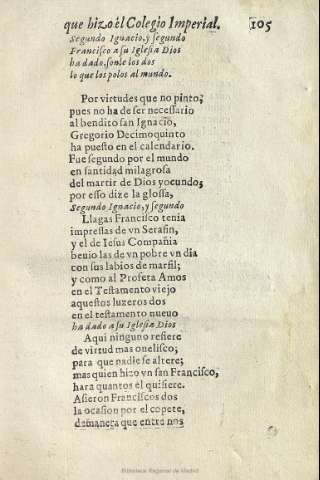 que hizo el Colegio Imperial. 105
Segundo Ignacio, y segundo
Francisco a su Iglesia Dios
ha dado, sonle los dos
lo que los polos al mundo.
Por virtudes que no pinto;
pues no ha de ser necessario
al bendito san Ignacio,
Gregorio Decimoquinto
ha puesto en el calendario.
Fue segundo por el mundo
en santidad milagrosa
del martir de Dios yocundo;
por esso dize la glossa,
Segundo Ignacio, y segundo
Llagas Francisco tenia
impressas de vn Serafin,
y el de Iesus Compañia
beuio las de vn pobre vn dia
con sus labios de marfil;
y como al Profeta Amos
en el Testamento viejo
aquestos luzeros dos
en el testamento nueuo
ha dado a su Iglesia Dios
Aqui ninguno refiere
de virtud mas
para que nadie se altere;
mas quien hizo vn san Francisco,
hara quantos el quisiere.
Asieron Franciscos dos
la ocasion por el copete,
demanera que entre nos
Biblioteca Regional de Madrid